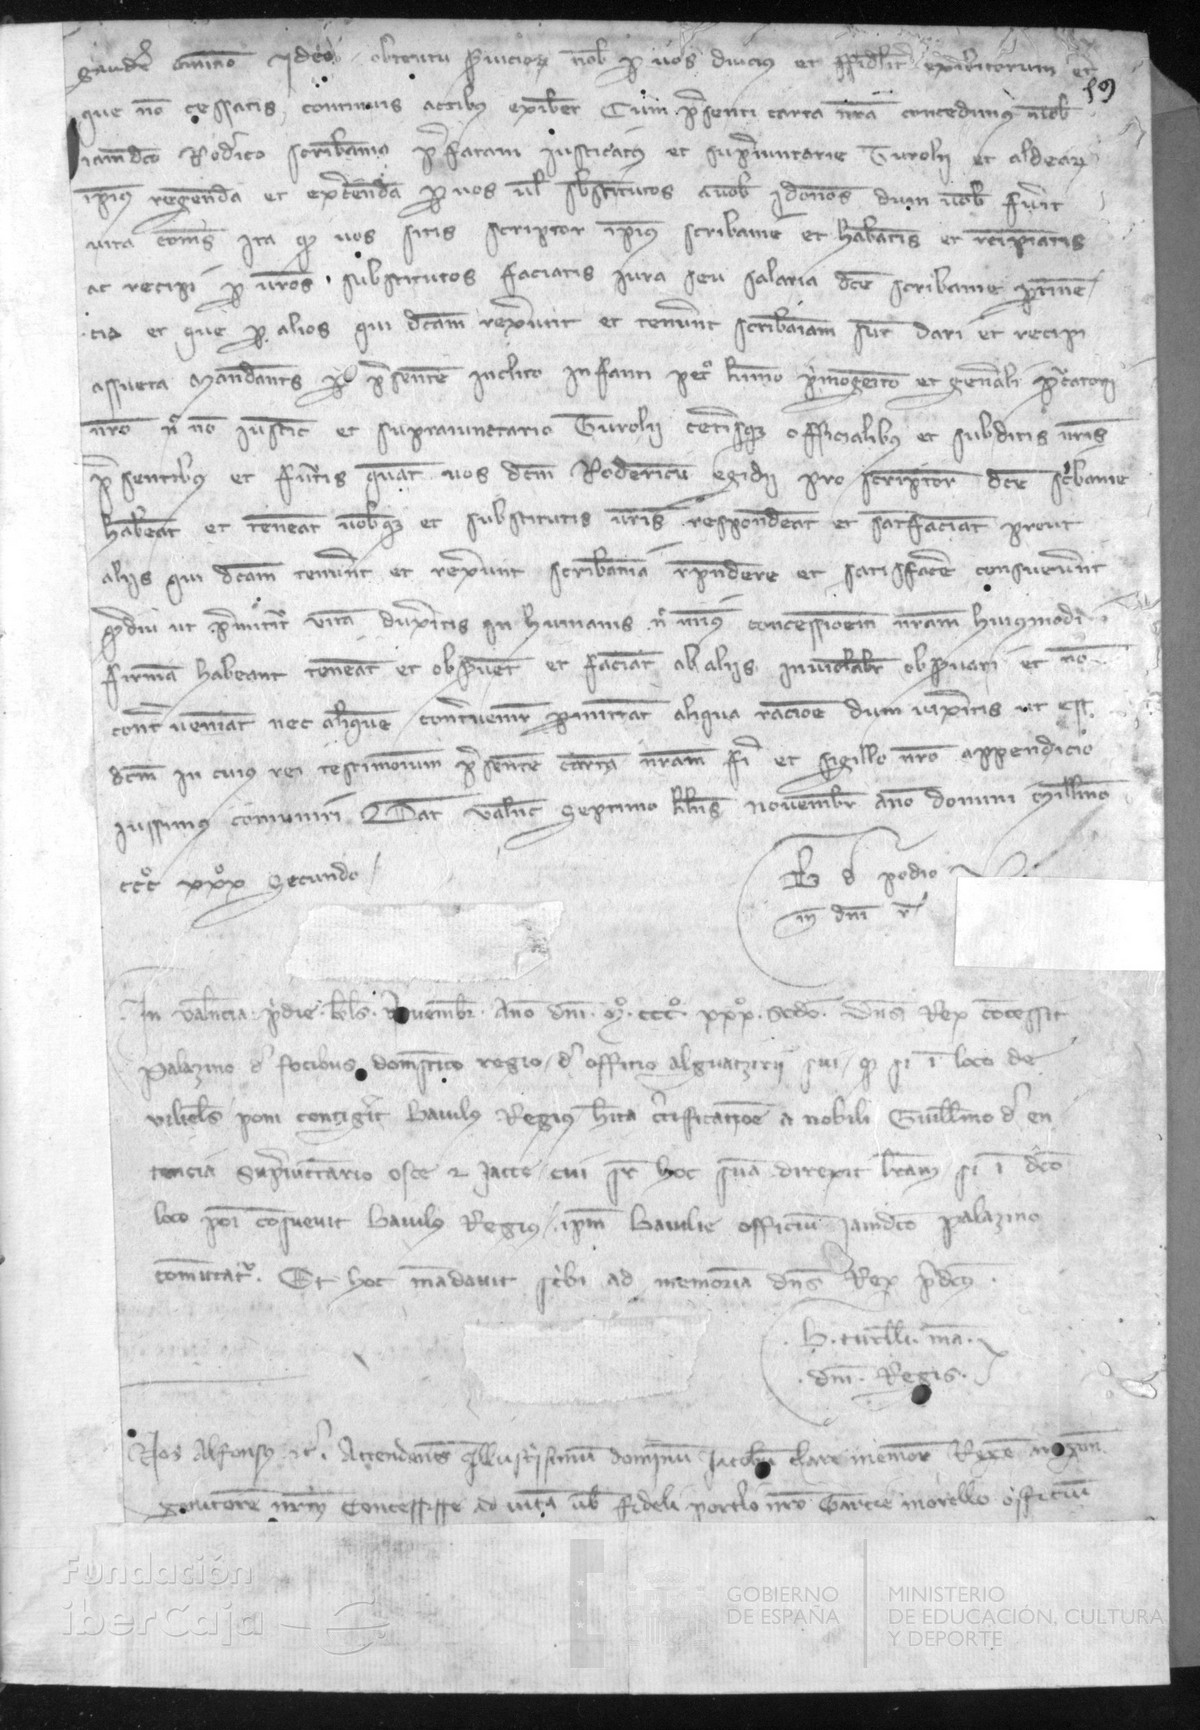 gauder animo Ideo obtentu serviciorum nob per vos diucius et fideliter exhibitorum et
59
que no cessatis continuis actibus exiber Cum presenti carta nra concedimus vob
iamdco Roderico scribaniam prefatam Iusticiatus et suprajunctarie Turolii et aldearum
ipius regenda et exercenda per vos vl substitutos a vob Idoneos dum vob fuerit
vita comes Ita quod vos sitis scriptor ipius scribanie et habeatis et recipiatis
ac recipi per vros substitutos faciatis iura seu salaria dce scribanie pertinen
cia et que per alios qui dcam rexerunt et tenuerunt scribaniam sunt dari et recipi
assueta Mandantes per presentem inclito Infanti petro krmo primogenito et generali procuratori
nro nc no iustic et suprajunctario Turolii ceterisque officialibus et subditis nris
presentibus et futuris quat vos dcm Rodericum egidii pro scriptore dce scribanie
habeant et teneant vobque et substitutis vris respondeat et satisfaciat prout
aliis qui dcam tenuerunt et rexerunt scribaniam respondere et satisfacere consueverunt
quamdiu ut premittitur vitam duxeritis in humanis nc minus concessionem nram huiusmodi
firmam habeant teneant et observent et faciant ab aliis inviolabiliter observari et non
contraveniant nec aliquem contravenire permittant aliqua racione dum vixeritis ut est
dcm In cuius rei testimonium presentem cartam nram fieri et sigillo nro appendicio
iussimus comuniri Dat Valenc septimo klns novembr Ano domini Millmo
cccº xxxº secundo
B de podio
m dni r
In Valencia pridie kls Novembr Ano dni Mº cccº xxxº scdo Dns Rex concessit
Palazino de focibus domestico regio de officio alguatzirii sui quod si i loco de
viliels poni contigerit baiulus Regius hita certificatione a nobili Guillmo den
tencia Suprajunctario osce et Jacce cui super hoc suam direxit lram si i dco
loco poni consuevit baiulus Regius ipm baiulie officium iamdco palazino
comictatur. Et hoc mandavit scribi ad memoriam dns Rex predcus.
B. turelli. ma.
dni. Regis.
Nos Alfonsus etc. Attendentes Illustrissimum dominum Jacobum clare memor Regem Aragon
genitorem nrm concessisse ad vitam vob fideli portario nro Garcie morello officium
Fundación
iberCaja
GOBIERNO
DE ESPAÑA
MINISTERIO
DE EDUCACIÓN, CULTURA
Y DEPORTE